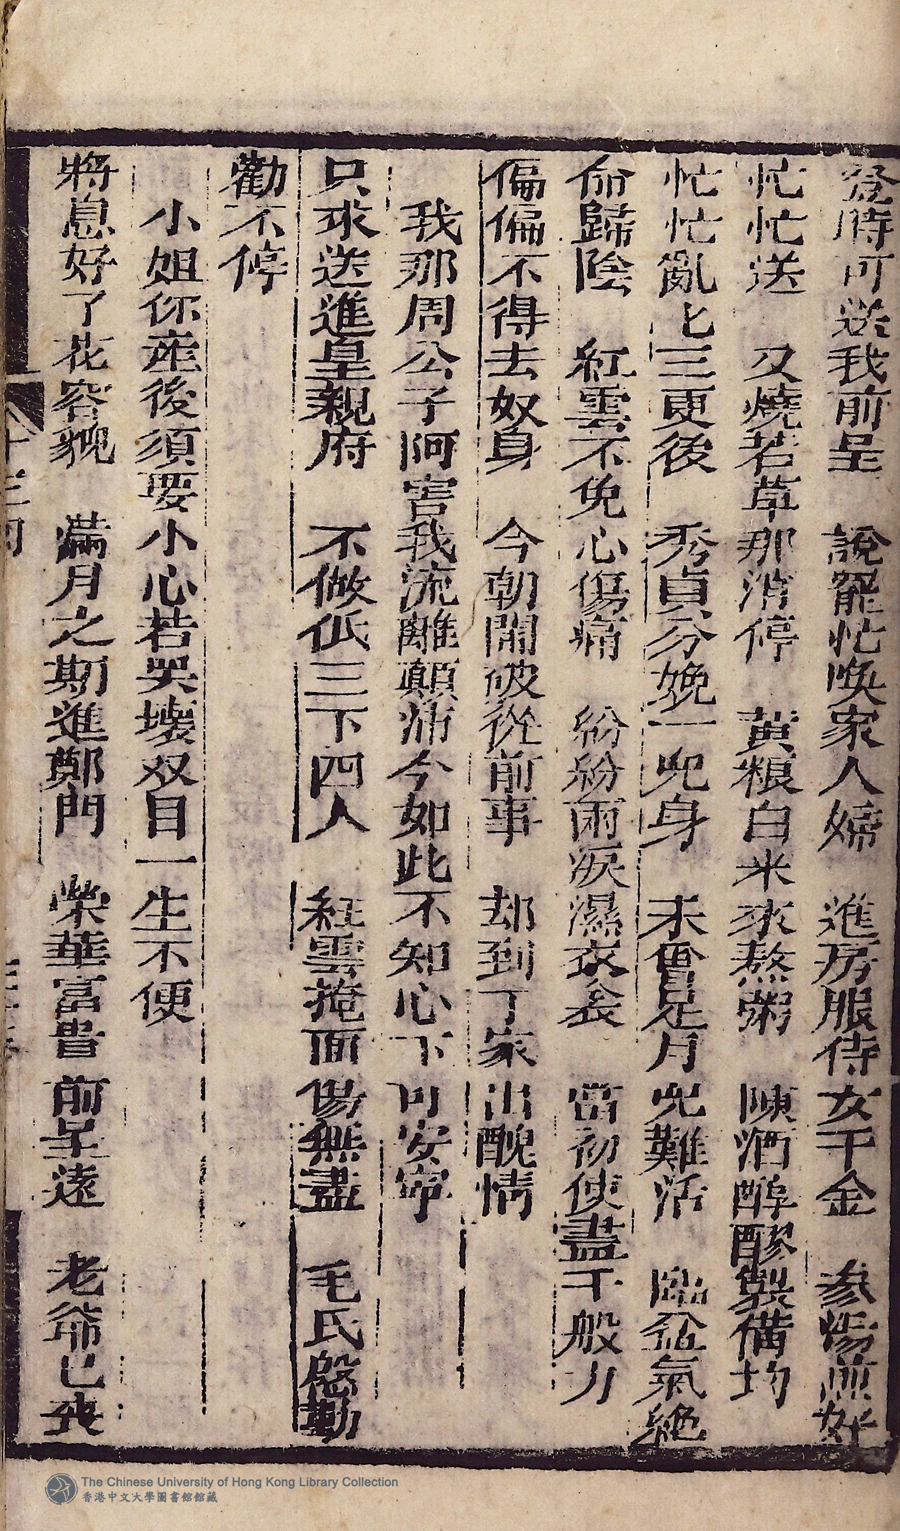 登時可送我前呈　說罷忙喚家人婦　進房服侍女千金　參湯煎好
忙忙送　又燒若草那消停　黃粮白米來熬粥　陳酒醇醪製備均
忙忙亂匕三更後　秀貞分娩一児身　未會足月児難活　臨盆氣絶
命歸陰　紅雲不免心傷痛　紛紛雨淚濕衣衾　當初使盡千般力
偏偏不得去奴身　今朝開破從前事　却到丁家出醜情
我那周公子阿害我流離顛沛今如此不知心下可安寧
只求送進皇親府　不做低三下四人　紅雲掩面傷無盡　毛氏慇勤
勸不停
小姐你産後須要小心若哭壞双目一生不便
將息好了花容貌　滿月之期進鄭門　榮華富貴前呈遠　老爺已喪
The Chinese University of Hong Kong Library Collection
香港中文大學圖書館館藏